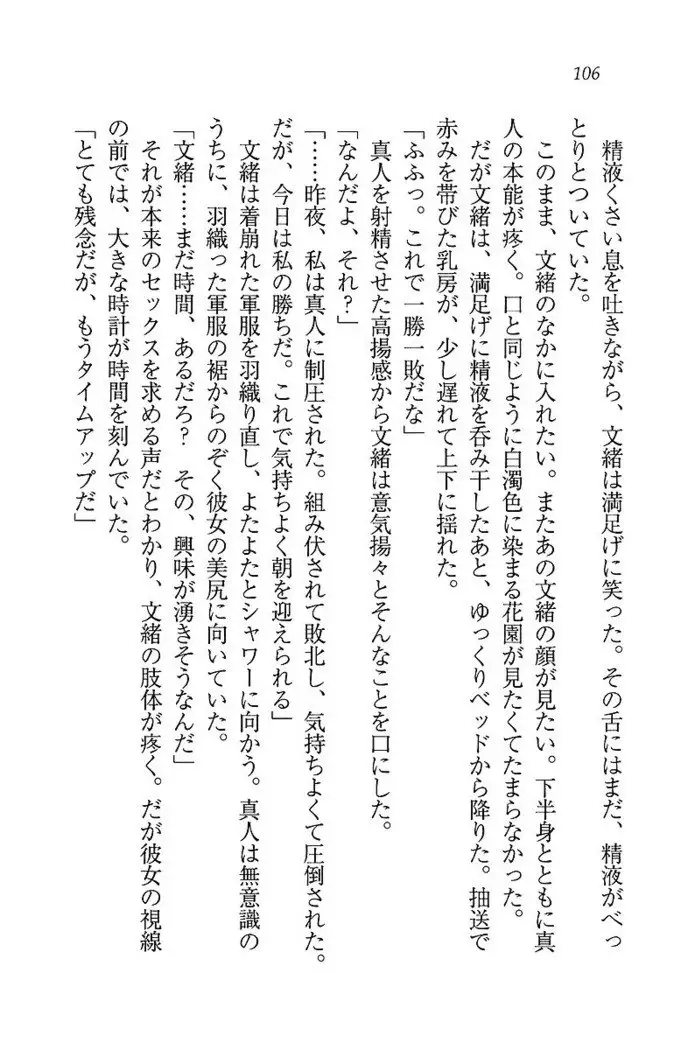 106
精液くさい息を吐きながら、文緒は満足げに笑った。その舌にはまだ、精液がべっ
とりとついていた。
このまま、文緒のなかに入れたい。またあの文緒の顔が見たい。下半身とともに真
人の本能が疼く。口と同じように白濁色に染まる花園が見たくてたまらなかった。
だが文緒は、満足げに精液を呑み干したあと、ゆっくりベッドから降りた。抽送で
赤みを帯びた乳房が、少し遅れて上下に揺れた。
「ふふっ。これで一勝一敗だな」
真人を射精させた高揚感から文緒は意気揚々とそんなことを口にした。
「なんだよ、それ？」
「……昨夜、私は真人に制圧された。組み伏されて敗北し、気持ちよくて圧倒された。
だが、今日は私の勝ちだ。これで気持ちよく朝を迎えられる」
文緒は着崩れた軍服を羽織り直し、よたよたとシャワーに向かう。真人は無意識の
うちに、羽織った軍服の裾からのぞく彼女の美尻に向いていた。
「文緒……まだ時間、あるだろ？　その、興味が湧きそうなんだ」
それが本来のセックスを求める声だとわかり、文緒の肢体が疼く。だが彼女の視線
の前では、大きな時計が時間を刻んでいた。
「とても残念だが、もうタイムアップだ」